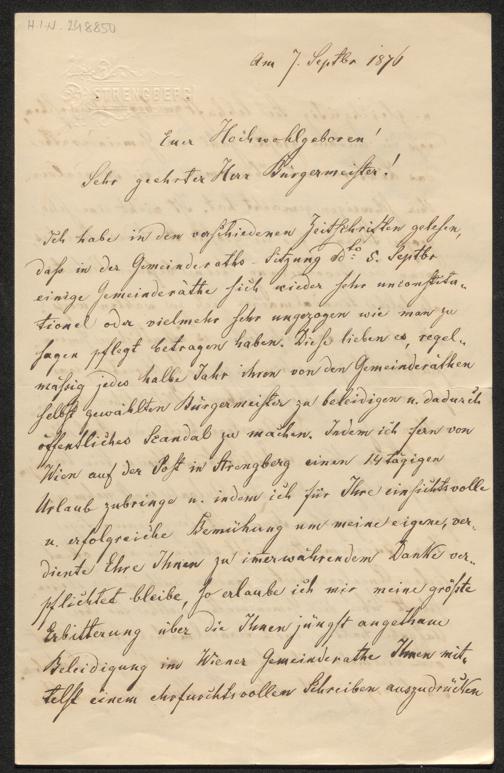 H.I.N. 248850
STRENGBERG
Am 7. Septbr 1876
Euer Hochwohlgeboren!
Sehr geehrter Herr Bürgermeister!
Ich habe in den verschiedenen Zeitschriften gelesen,
daß in der Gemeinderaths-Sitzung dto: 5. Septbr
einige Gemeinderäthe sich wieder sehr unconstitu-
tionel oder vielmehr sehr ungezogen wie man zu
sagen pflegt betragen haben. Diese lieben es, regel-
mässig jedes halbe Jahr ihren von den Gemeinderäthen
selbst gewählten Bürgermeister zu beleidigen u. dadurch
öffentliches Scandal zu machen. Indem ich fern von
Wien auf der Post in Strengberg einen 14 tägigen
Urlaub zubringe u. indem ich für Ihre einsichtsvolle
u. erfolgreiche Bemühung um meine eigene, ver-
diente Ehre Ihnen zu imerwährendem Danke ver-
pflichtet bleibe, so erlaube ich mir meine größte
Erbitterung über die Ihnen jüngst angethane
Beleidigung im Wiener Gemeinderathe Ihnen mit-
telst einem ehrfurchtsvollen Schreiben auszudrücken